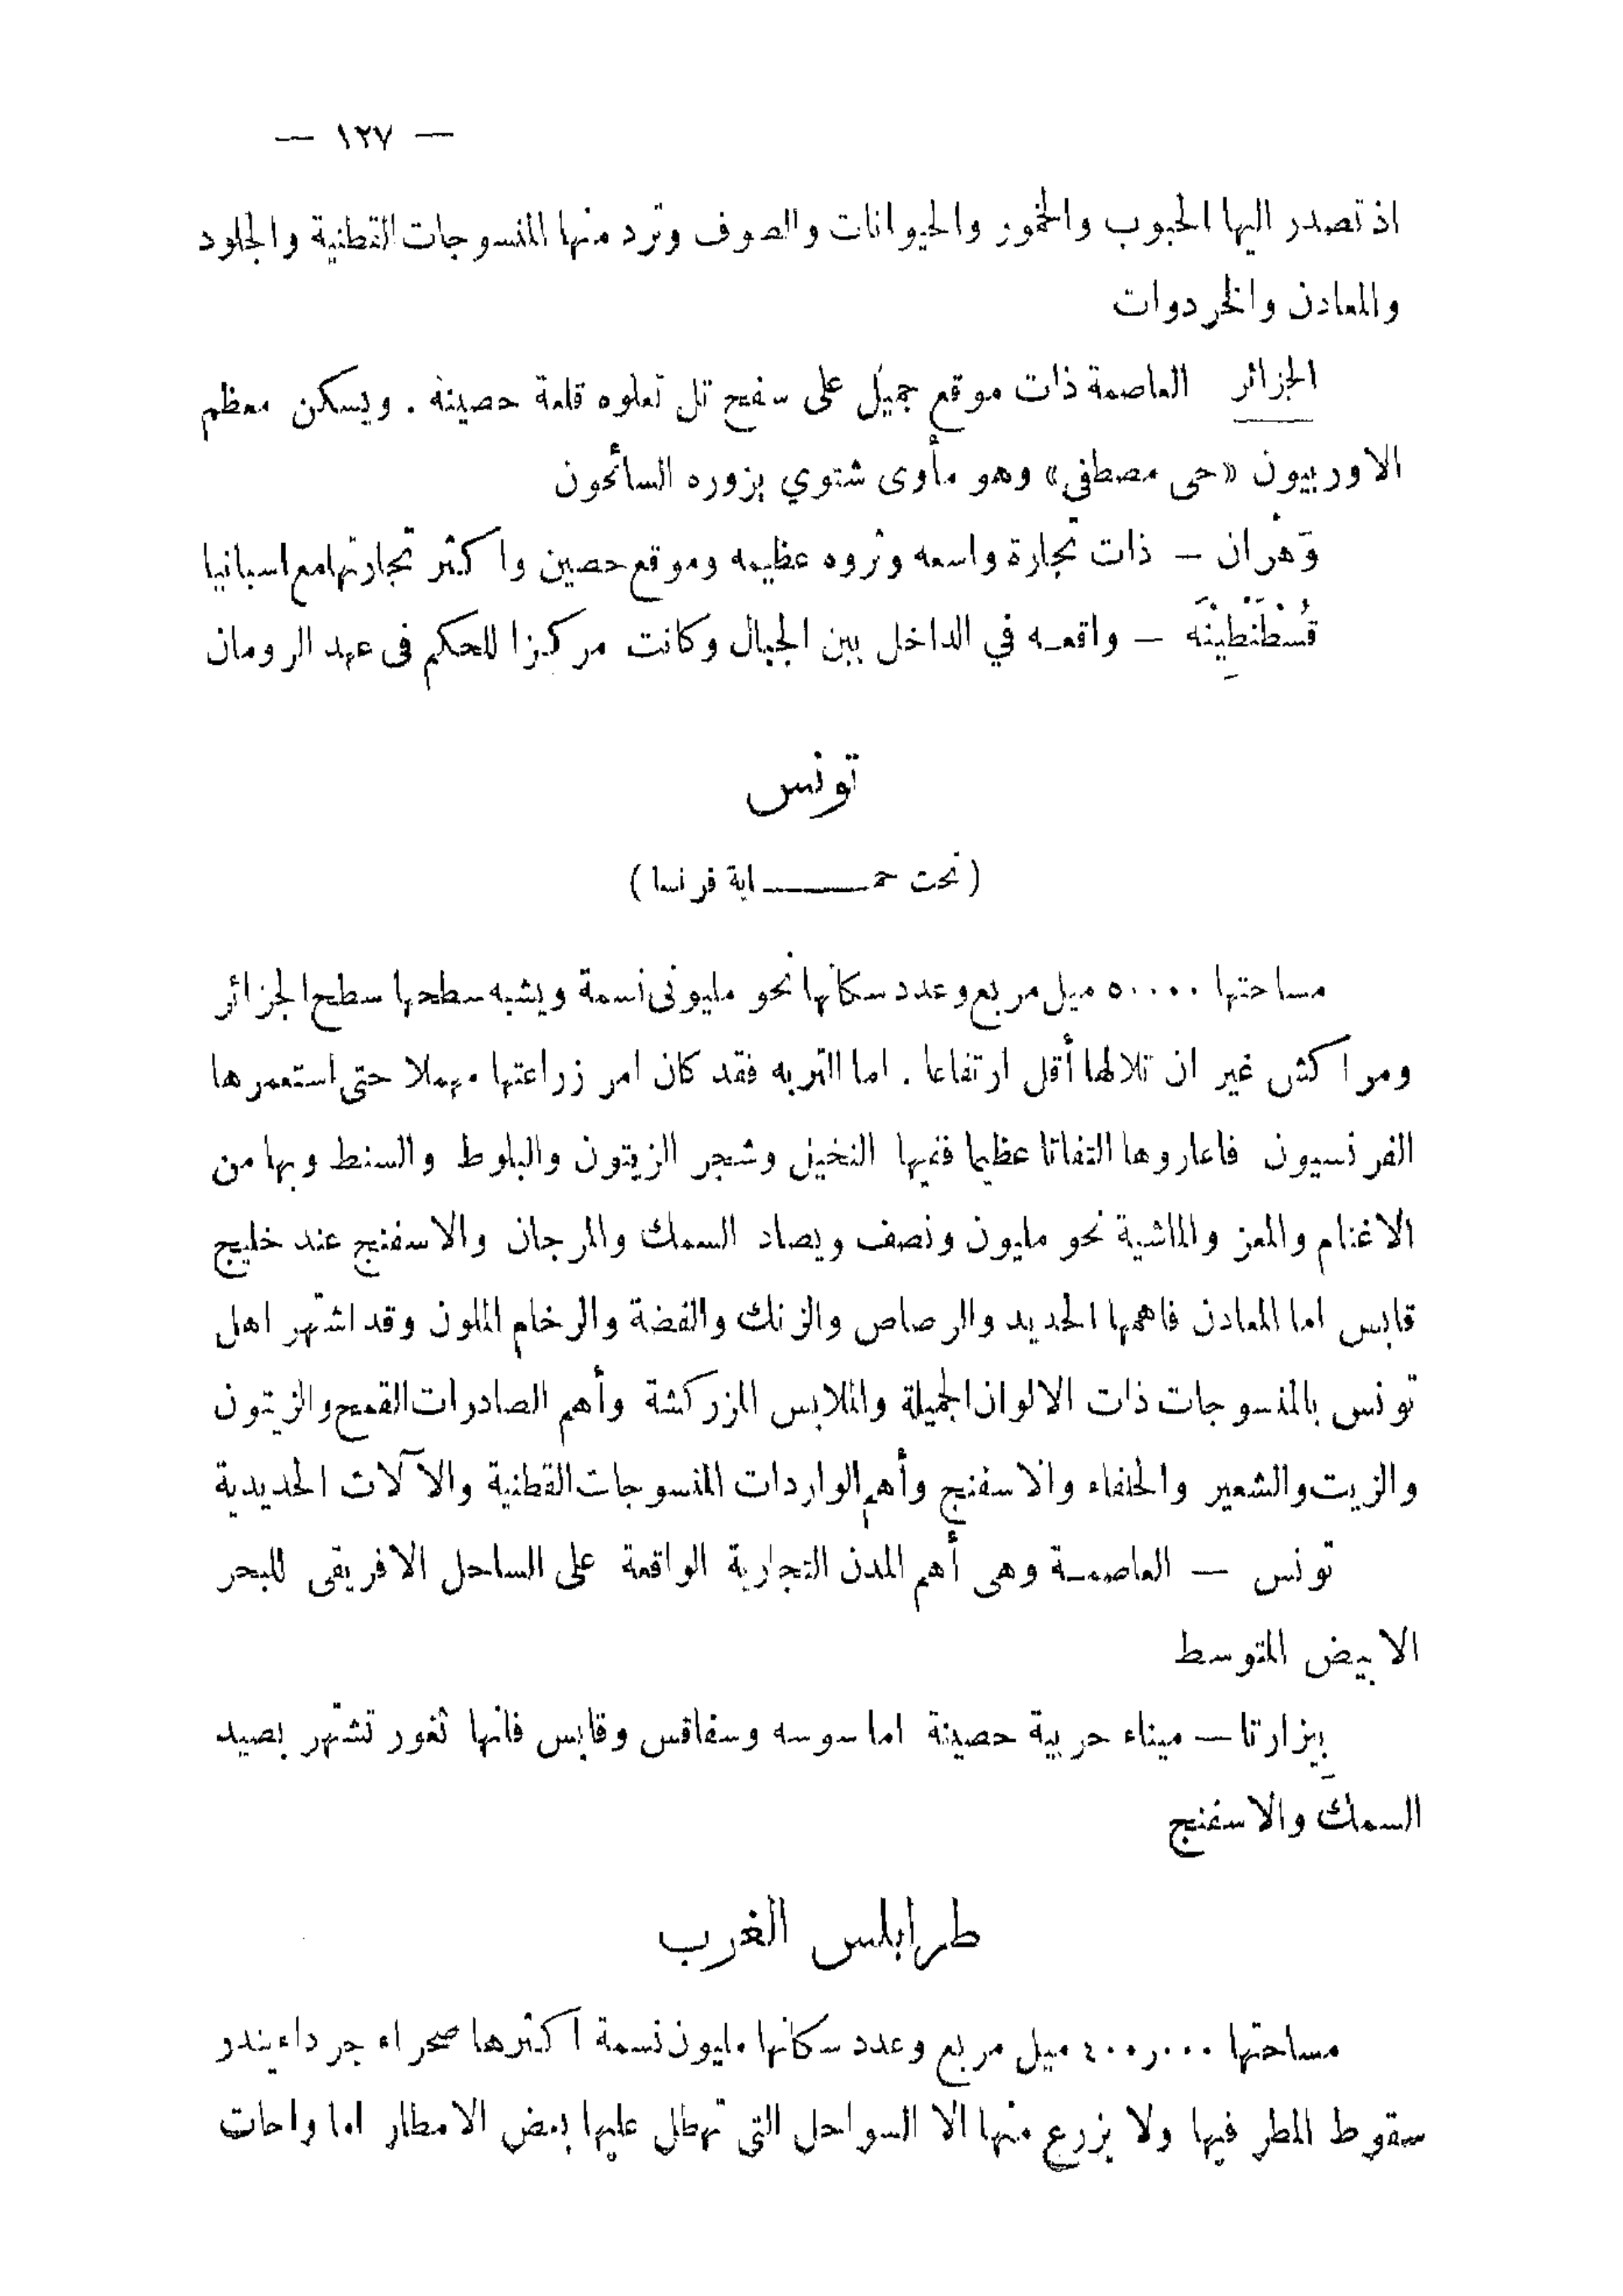 — ١٢٧ —
اذ تصدر اليها الحبوب والخمور والحيوانات والصوف وترد منها المنسوجات القطنية والجلود
والمعادن والخردوات
الجزائر العاصمة ذات موقع جميل على سفح تل تعلوه قلعة حصينة . ويسكن معظم
الاوربيون «حى مصطفى» وهو مأوى شتوي يزوره السائحون
وَهْران — ذات تجارة واسعه وثروه عظيمه وموقع حصين واكثر تجارتها مع اسبانيا
قُسْطَنْطِيْنَه — واقعه في الداخل بين الجبال وكانت مركزا للحكم فى عهد الرومان
تونس
(تحت حمـــاية فرنسا)
مساحتها ٥٠٠٠٠ ميل مربع وعدد سكانها نحو مليونى نسمة ويشبه سطحها سطح الجزائر
ومراكش غير ان تلالها أقل ارتفاعا . اما التربه فقد كان امر زراعتها مهملا حتى استعمرها
الفرنسيون فاعاروها التفاتا عظيما ففيها النخيل وشجر الزيتون والبلوط والسنط وبها من
الاغنام والمعز والماشية نحو مليون ونصف ويصاد السمك والمرجان والاسفنج عند خليج
قابس اما المعادن فاهمها الحديد والرصاص والزنك والفضة والرخام الملون وقد اشتهر اهل
تونس بالمنسوجات ذات الالوان الجميلة والملابس المزركشة وأهم الصادرات القمح والزيتون
والزيت والشعير والحلفاء والاسفنج وأهم الواردات المنسوجات القطنية والآلات الحديدية
تونس — العاصمة وهى أهم المدن التجارية الواقعة على الساحل الافريقى للبحر
الابيض المتوسط
بِيزارتا — ميناء حربية حصينة اما سوسه وسفاقس وقابس فانها ثغور تشتهر بصيد
السمك والاسفنج
طرابلس الغرب
مساحتها ٤٠٠ر٠٠٠ ميل مربع وعدد سكانها مليون نسمة اكثرها صحراء جرداء يندر
سقوط المطر فيها ولا يزرع منها الا السواحل التى تهطل عليها بعض الامطار اما واحات